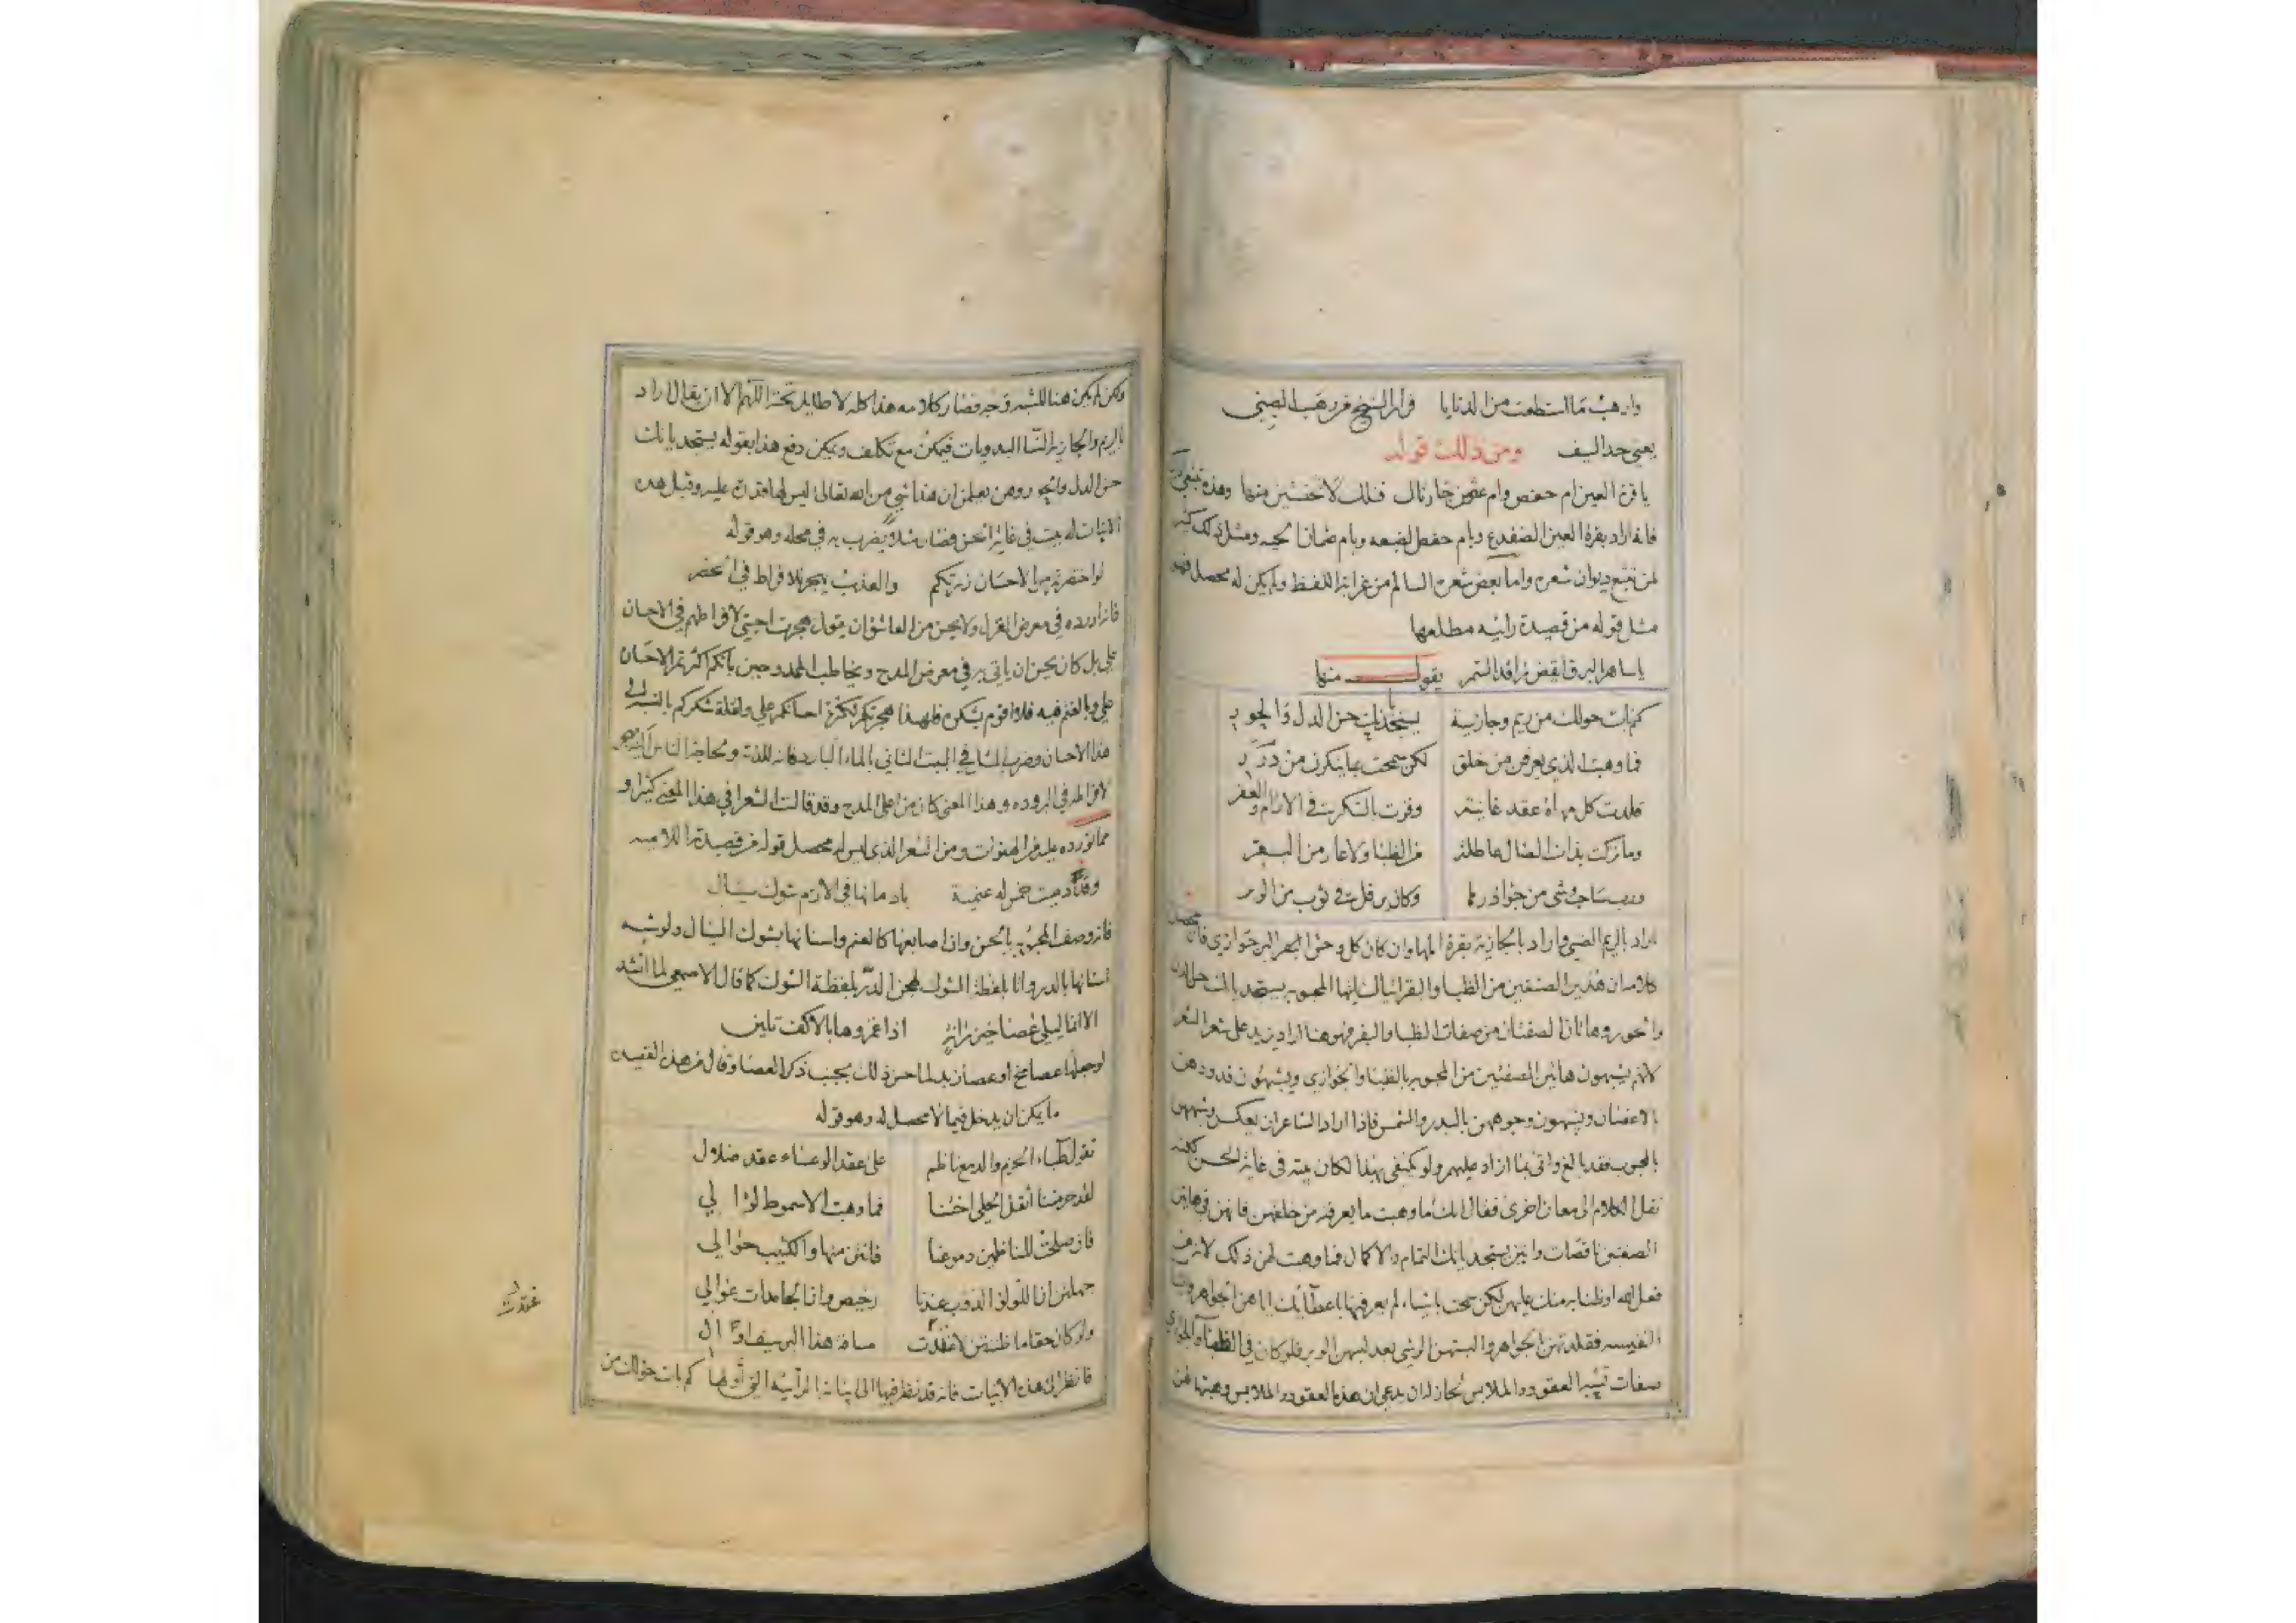 وارهب ما استطعت من الدنايا فرار الشيخ من رهب الصبي
يعني حد السيف ومن ذلك قوله
يا قرة العين ام حفص وام خارنال فلك لا تخشين منها وهذه
فانه اراد بقرة العين الضفدع وبام حفص الضبعه وبام ومثل ذلك كثير
لمن تتبع ديوان شعره واما بعض شعره السالم من غرابة اللفظ ولم يكن له محصل
مثل قوله من قصيدة رائيه مطلعها
يا ساهر البرق ايقظ راقد السمر يقول منها
كم بات حولك من ريم وجازية يستجديانك حسن الدل والحور
فما وهبت الذي يعرفن من خلق لكن سمحت بما ينكرن من درر
قلدت كل مهاة عقد غانية وفزت بالشكر في الارام والعفر
وما تركت بذات الضال عاطلة من الظبا ولا عار من البقر
ورب ساحب وشي من جواذرها وكان يرفل في ثوب من الوبر
اراد بالريم الظبي واراد بالجازية بقرة المها وان كان كل وحش البقر جوازي فان محصل
كلامه ان هذين الصنفين من الظبا والبقر ايها المحبوبه يستجديانك حسن الدل
والحور وهاتان الصفتان من صفات الظبا والبقر فهو هنا اراد يزيد على شعر الشعرا
لانهم يشبهون هاتين الصفتين من المحبوبه بالظبا والجوازي ويشبهون قدودهن
بالاغصان ويشبهون وجوههن بالبدر والشمس فاذا اراد الشاعر ان يعكس ويشبههن
بالمحبوب فقد بالغ واتى بما ازاد عليهم ولو يكتفي بهذا لكان بيته في غاية الحسن لكنه
نقل الكلام الى معان اخرى فقال انك ما وهبت ما يعرفنه من خلقهن فانهن في هاتين
الصفتين ناقصات واتين يستجديانك التمام والاكمال فما وهبت لهن ذلك لانه من
فعل الله او ظنا به منك عليهن لكن سمحت باشياء لم يعرفنها باعطائك اياهن الجواهر
النفيسه فقلدتهن الجواهر والبستهن الوشي بعد لبسهن الوبر فلو كان في الظبا والجوازي
صفات تشبه العقود والملابس لجاز له ان يدعي ان هذه العقود والملابس وهبتها لهن
ولكن لم يكن هنا للشبه وجه فصار كلامه هذا كله لا طايل تحته اللهم الا ان يقال اراد
بالريم والجازية النسا البدويات فيمكن مع تكلف ويمكن دفع هذا بقوله يستجديانك
حسن الدل والحور وهن يعلمن ان هذا شي من الله تعالى ليس لها قدرة عليه وقبل هذه
الابيات له بيت في غاية الحسن فصار مثلا يضرب به في محله وهو قوله
لو اختصرتم من الاحسان زرتكم والعذب يهجر للافراط في الخصر
فانه اورده في معرض الغزل ولا يحسن من العاشق ان يقول هجرت احبتي لافراطهم في الاحسان
علي بل كان يحسن ان ياتي به في معرض المدح ويخاطب الممدوحين بانكم اكثرتم الاحسان
علي وبالغتم فيه فلا اقوم بشكره فلهذا هجرتكم لكثرة احسانكم علي ولقلة شكركم بالنسبة الى
هذا الاحسان وضرب المثل في البيت الثاني بالماء البارد فانه للذته
لافراطه في البروده وهذا المعنى كان من اعلى المدح وقد قالت الشعرا في هذا المعنى كثيرا و
مما نورده عليه من الهفوات ومن الشعر الذي ليس له محصل قوله من قصيدته اللاميه
باد مانها في الازم شوك سيال
فانه وصف المحبوبه بالحسن وان اصابعها كالعنم واسنانها بشوك السيال ولو شبه
اسنانها بالدر واتى بلفظة الشوك لهجن الدر بلفظة الشوك كما قال الاصمعي لما انشد
الا انما ليلى عصا خيزرانة اذا غمزوها بالاكف تلين
لو جعلها عصا مخ او عصا زبد لما حسن ذلك بجنب ذكر العصا وقال من هذه القصيده
ما يمكن ان يدخل فيما لا محصل له وهو قوله
تقول ظباء الحزم والدمع ناظم على عقد الوعساء عقد ضلال
لقد حرمتنا اثقل الحلي اختنا فما وهبت الا سموط لؤالي
فان صلحت للناظمين دموعنا فانتن منها والكثيب حوالي
جهلتن ان اللؤلؤ الذوب عندنا رخيص وان الجامدات غوالي
ولو كان حقا ما ظننتن لاغتدت مسافة هذا البر سيف اوال
فانظر الى هذه الابيات فانه قد نظر فيها الى ابياته الرائيه التي اولها كم بات حولك من